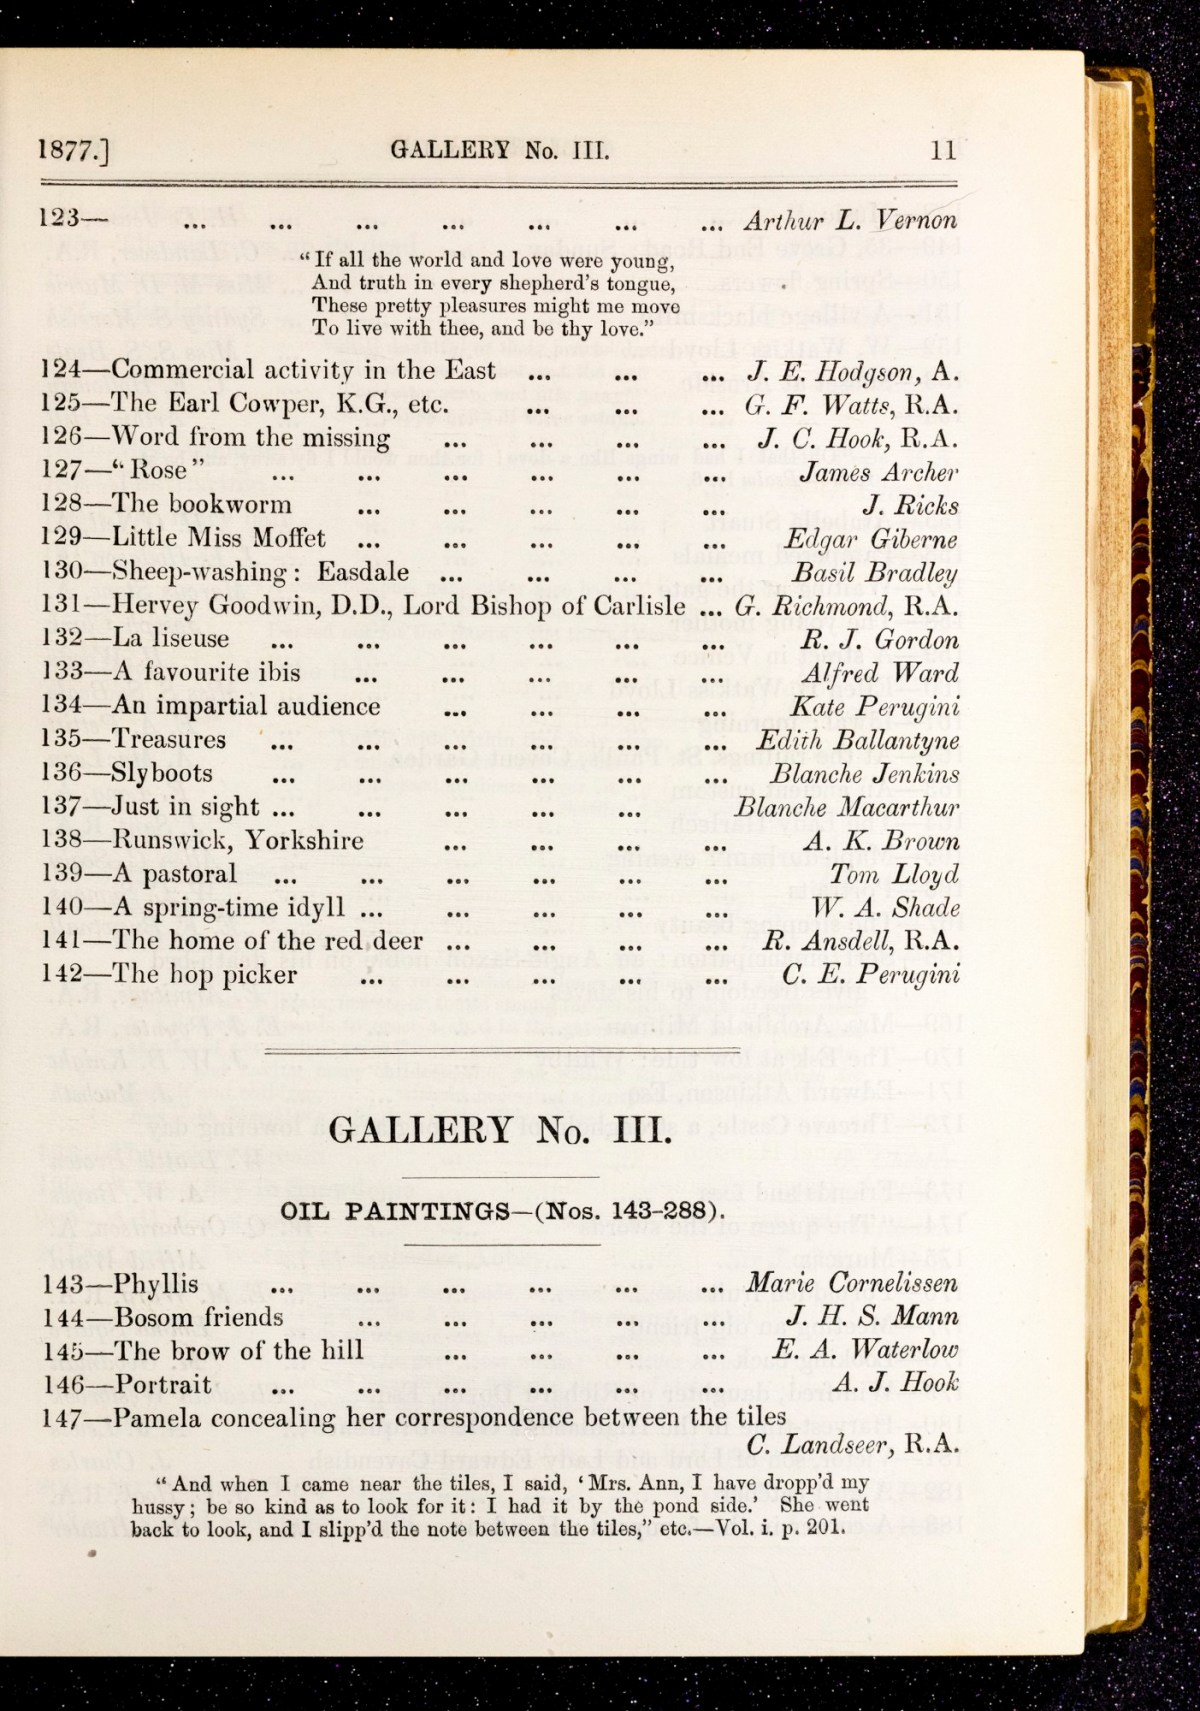 1877.] GALLERY No. III. 11
123— ... ... ... ... ... ... ... Arthur L. Vernon
“If all the world and love were young,
And truth in every shepherd’s tongue,
These pretty pleasures might me move
To live with thee, and be thy love.”
124—Commercial activity in the East ... ... ... J. E. Hodgson, A.
125—The Earl Cowper, K.G., etc. ... ... ... G. F. Watts, R.A.
126—Word from the missing ... ... ... ... J. C. Hook, R.A.
127—“Rose” ... ... ... ... ... ... James Archer
128—The bookworm ... ... ... ... ... J. Ricks
129—Little Miss Moffet ... ... ... ... ... Edgar Giberne
130—Sheep-washing: Easdale ... ... ... ... Basil Bradley
131—Hervey Goodwin, D.D., Lord Bishop of Carlisle ... G. Richmond, R.A.
132—La liseuse ... ... ... ... ... ... R. J. Gordon
133—A favourite ibis ... ... ... ... ... Alfred Ward
134—An impartial audience ... ... ... ... Kate Perugini
135—Treasures ... ... ... ... ... ... Edith Ballantyne
136—Slyboots ... ... ... ... ... ... Blanche Jenkins
137—Just in sight ... ... ... ... ... Blanche Macarthur
138—Runswick, Yorkshire ... ... ... ... A. K. Brown
139—A pastoral ... ... ... ... ... ... Tom Lloyd
140—A spring-time idyll ... ... ... ... ... W. A. Shade
141—The home of the red deer ... ... ... ... R. Ansdell, R.A.
142—The hop picker ... ... ... ... ... C. E. Perugini
GALLERY No. III.
OIL PAINTINGS—(Nos. 143-288).
143—Phyllis ... ... ... ... ... ... Marie Cornelissen
144—Bosom friends ... ... ... ... ... J. H. S. Mann
145—The brow of the hill ... ... ... ... E. A. Waterlow
146—Portrait ... ... ... ... ... ... A. J. Hook
147—Pamela concealing her correspondence between the tiles
C. Landseer, R.A.
“And when I came near the tiles, I said, ‘Mrs. Ann, I have dropp’d my
hussy; be so kind as to look for it: I had it by the pond side.’ She went
back to look, and I slipp’d the note between the tiles,” etc.—Vol. i. p. 201.